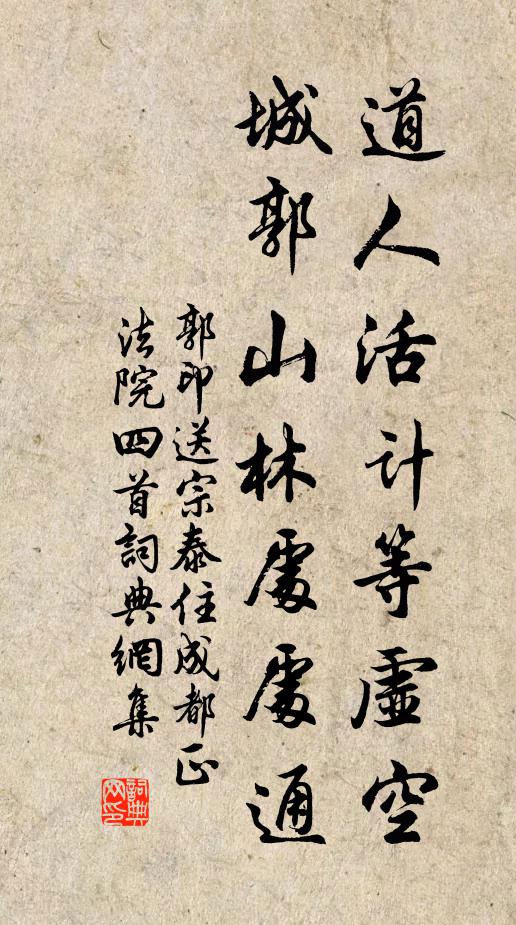 道人活计等虛空
城郭山林處處通
郭印送宗泰住成都正
法院四首詞典網集
詞典
网印